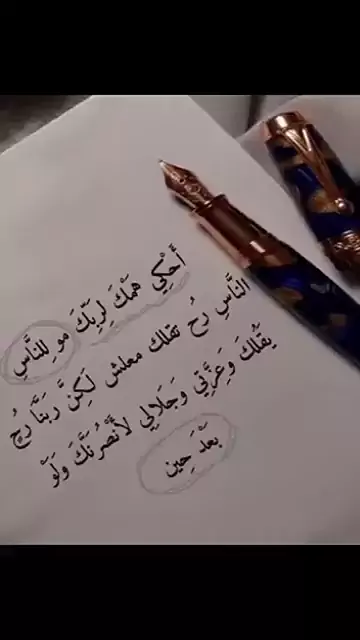 أَحْكِي هَمَّكَ لِرَبِّكَ مو لِلنَّاسِ
النَّاسِ رُح تقلك معلش لَكِنَّ رَبَّنَا رح
يقْلكَ وَعِزَّتِي وَجَلَالِي لأَنْصُرَنَّكَ وَلَوْ
بَعْدَ حِين